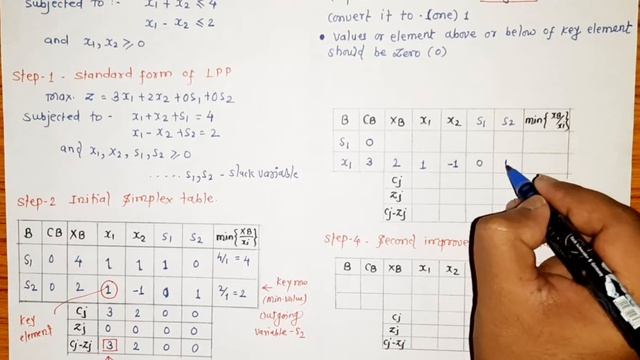 subjected to - x₁+x₂ ≤ 4
x₁-x₂ ≤ 2
and x₁,x₂ ≥ 0
Step-1 - Standard form of LPP
max. Z = 3x₁+2x₂+0s₁+0s₂
subjected to - x₁+x₂+s₁ = 4
x₁-x₂+s₂ = 2
and x₁,x₂,s₁,s₂ ≥ 0
..... s₁,s₂ - slack variable
Step-2 Initial simplex table.
B CB XB x₁ x₂ s₁ s₂ min{XB/xi}
s₁ 0 4 1 1 1 0 4/1 = 4
s₂ 0 2 1 -1 0 1 2/1 = 2
Cj 3 2 0 0
Zj 0 0 0 0
Cj-Zj 3 2 0 0
key element
← key row
(min.value)
outgoing
variable-s₂
convert it to -(one) 1
• values or element above or below of key element
should be zero (0)
B CB XB x₁ x₂ s₁ s₂ min{XB/xi}
s₁ 0
x₁ 3 2 1 -1 0
Cj
Zj
Cj-Zj
Step-4 - Second improve
B CB XB x₁ x₂
Cj
Zj
Cj-Zj